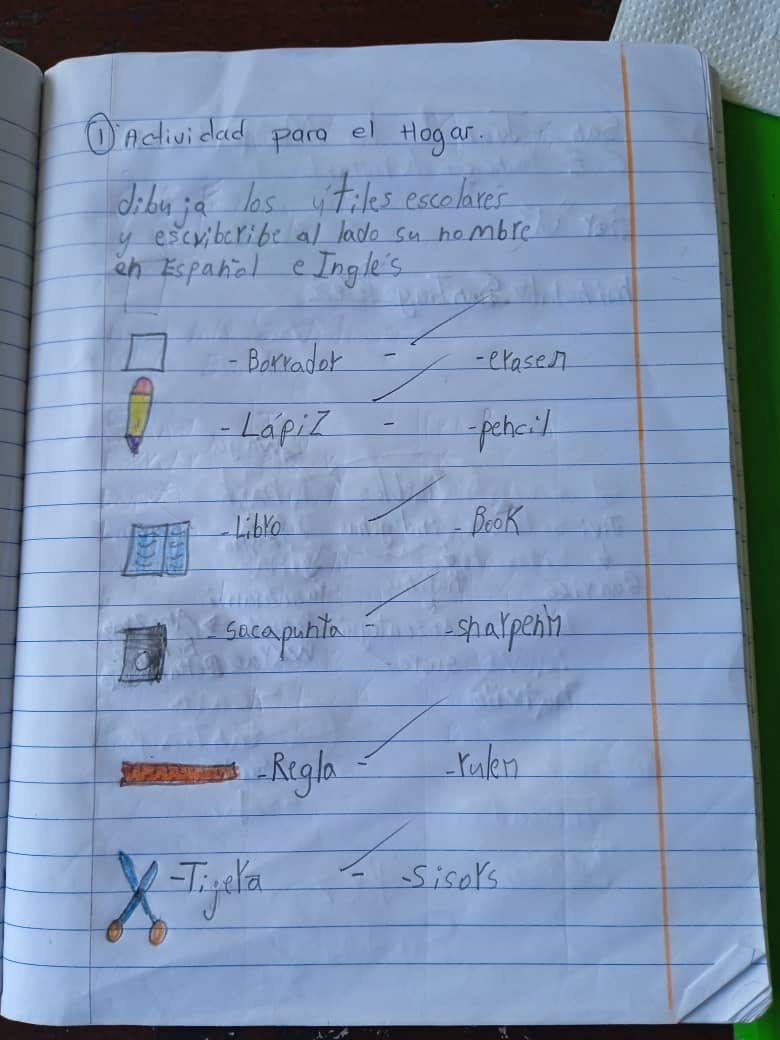 ① Actividad para el Hogar.
dibuja los útiles escolares
y escribcribe al lado su nombre
en Español e Inglés
- Borrador - - erasen
- Lápiz - - pencil
- Libro - Book
- sacapunta - - sharpenn
- Regla - - rulen
- Tijera - - Sisors